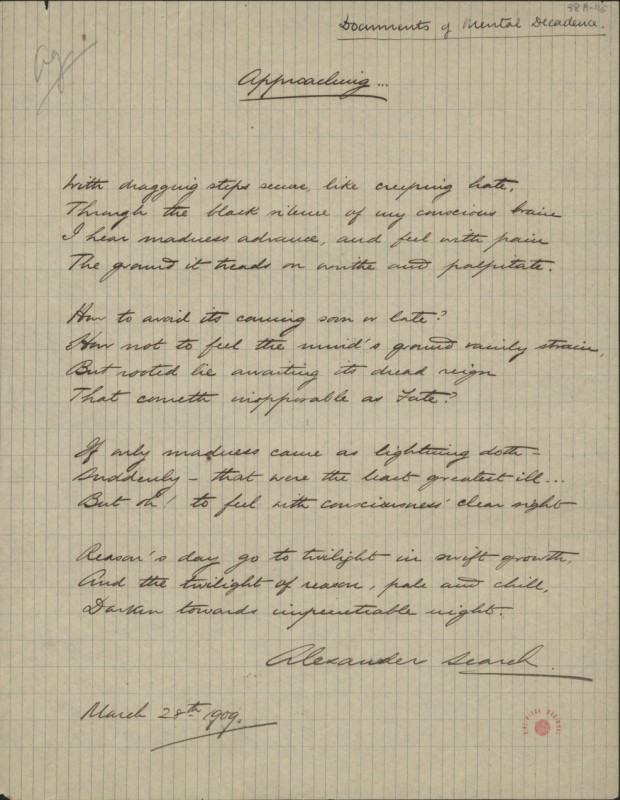 98A-46
Documents of Mental Decadence.
ag
Approaching...
With dragging steps secure, like creeping hate,
Through the black silence of my conscious brain
I hear madness advance, and feel with pain
The ground it treads on writhe and palpitate.
How to avoid its coming soon or late?
How not to feel the mind's ground vainly strain,
But rooted lie awaiting its dread reign
That cometh inopposable as Fate?
If only madness came as lightning doth –
Suddenly – that were the least greatest ill...
But oh! to feel with consciousness' clear sight
Reason's day go to twilight in swift growth,
And the twilight of reason, pale and chill,
Darken towards impenetriable night.
Alexander Search.
March 28th 1909.
BIBLIOTECA NACIONAL